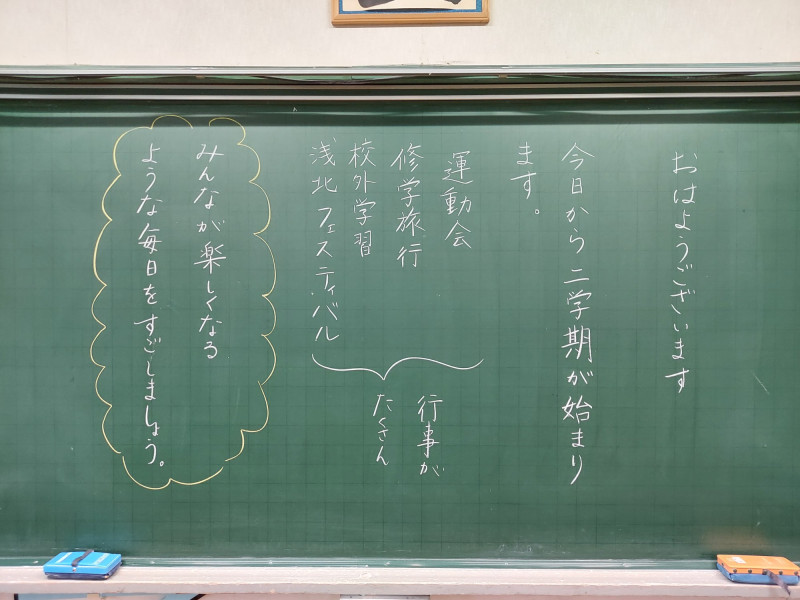 おはようございます
今日から二学期が始まり
ます。
運動会
修学旅行
校外学習
浅北フェスティバル
行事が
たくさん
みんなが楽しくなる
ような毎日をすごしましょう。